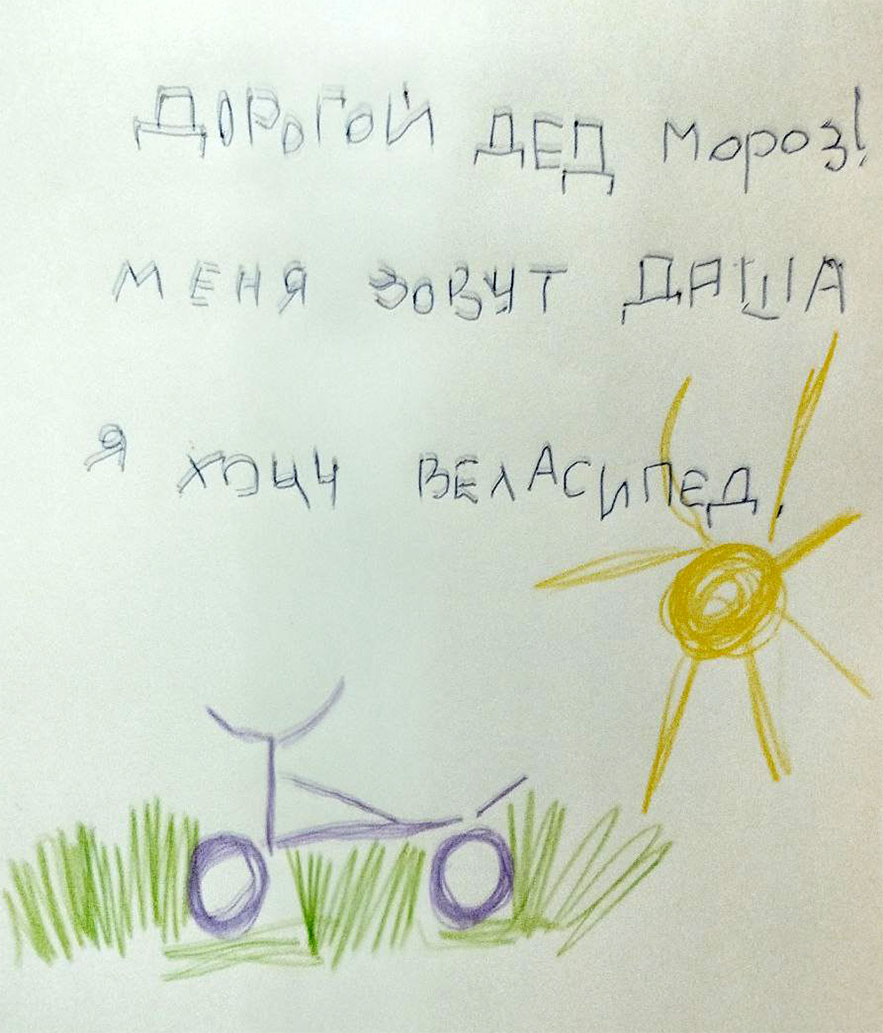 ДОРОГОЙ ДЕД МОРОЗ!
МЕНЯ ЗОВУТ ДАША
Я ХОЧУ ВЕЛАСИПЕД.